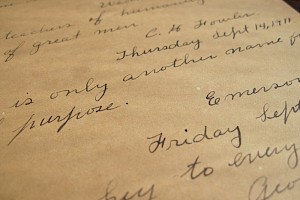 teachers of humanity
of great men
C. H. Fowler
Thursday Sept 14, 1911
is only another name for
purpose.
Emerson
Friday Sept
key to every
Geo